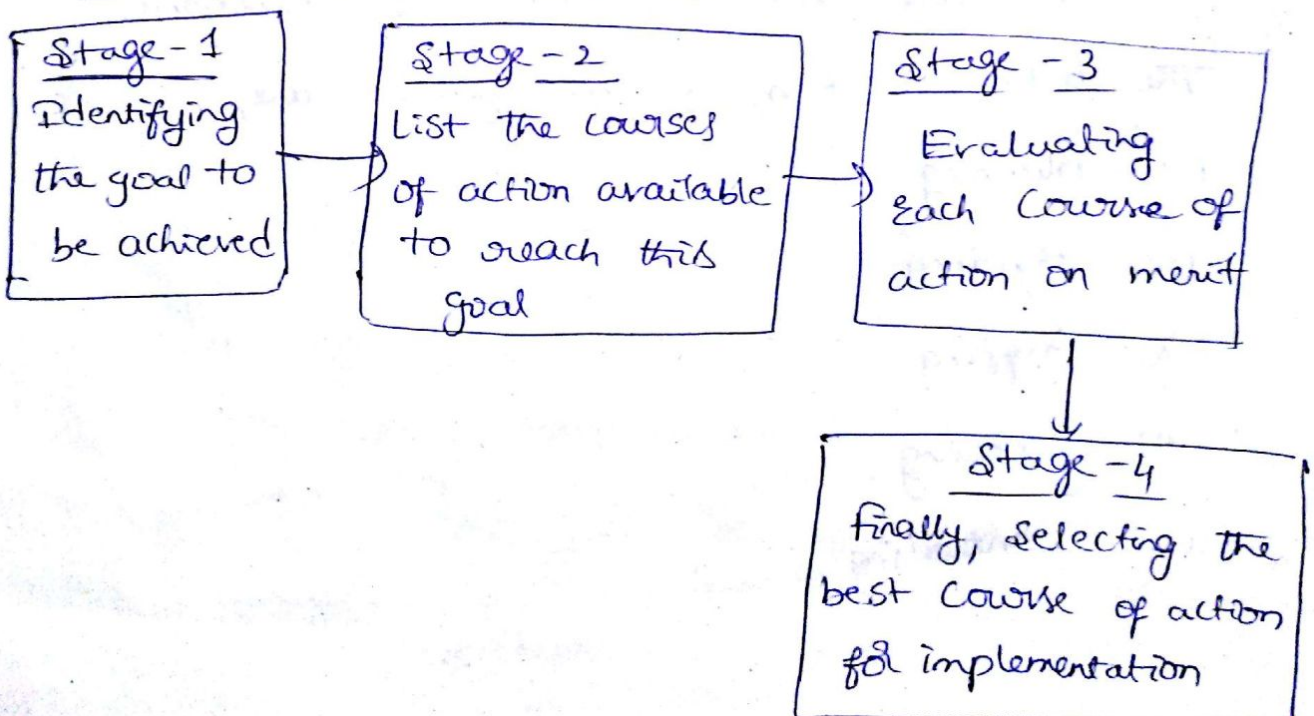 Stage - 1
Identifying
the goal to
be achieved
Stage - 2
List the courses
of action available
to reach this
goal
Stage - 3
Evaluating
Each Course of
action on merit
Stage - 4
finally, Selecting the
best Course of action
for implementation